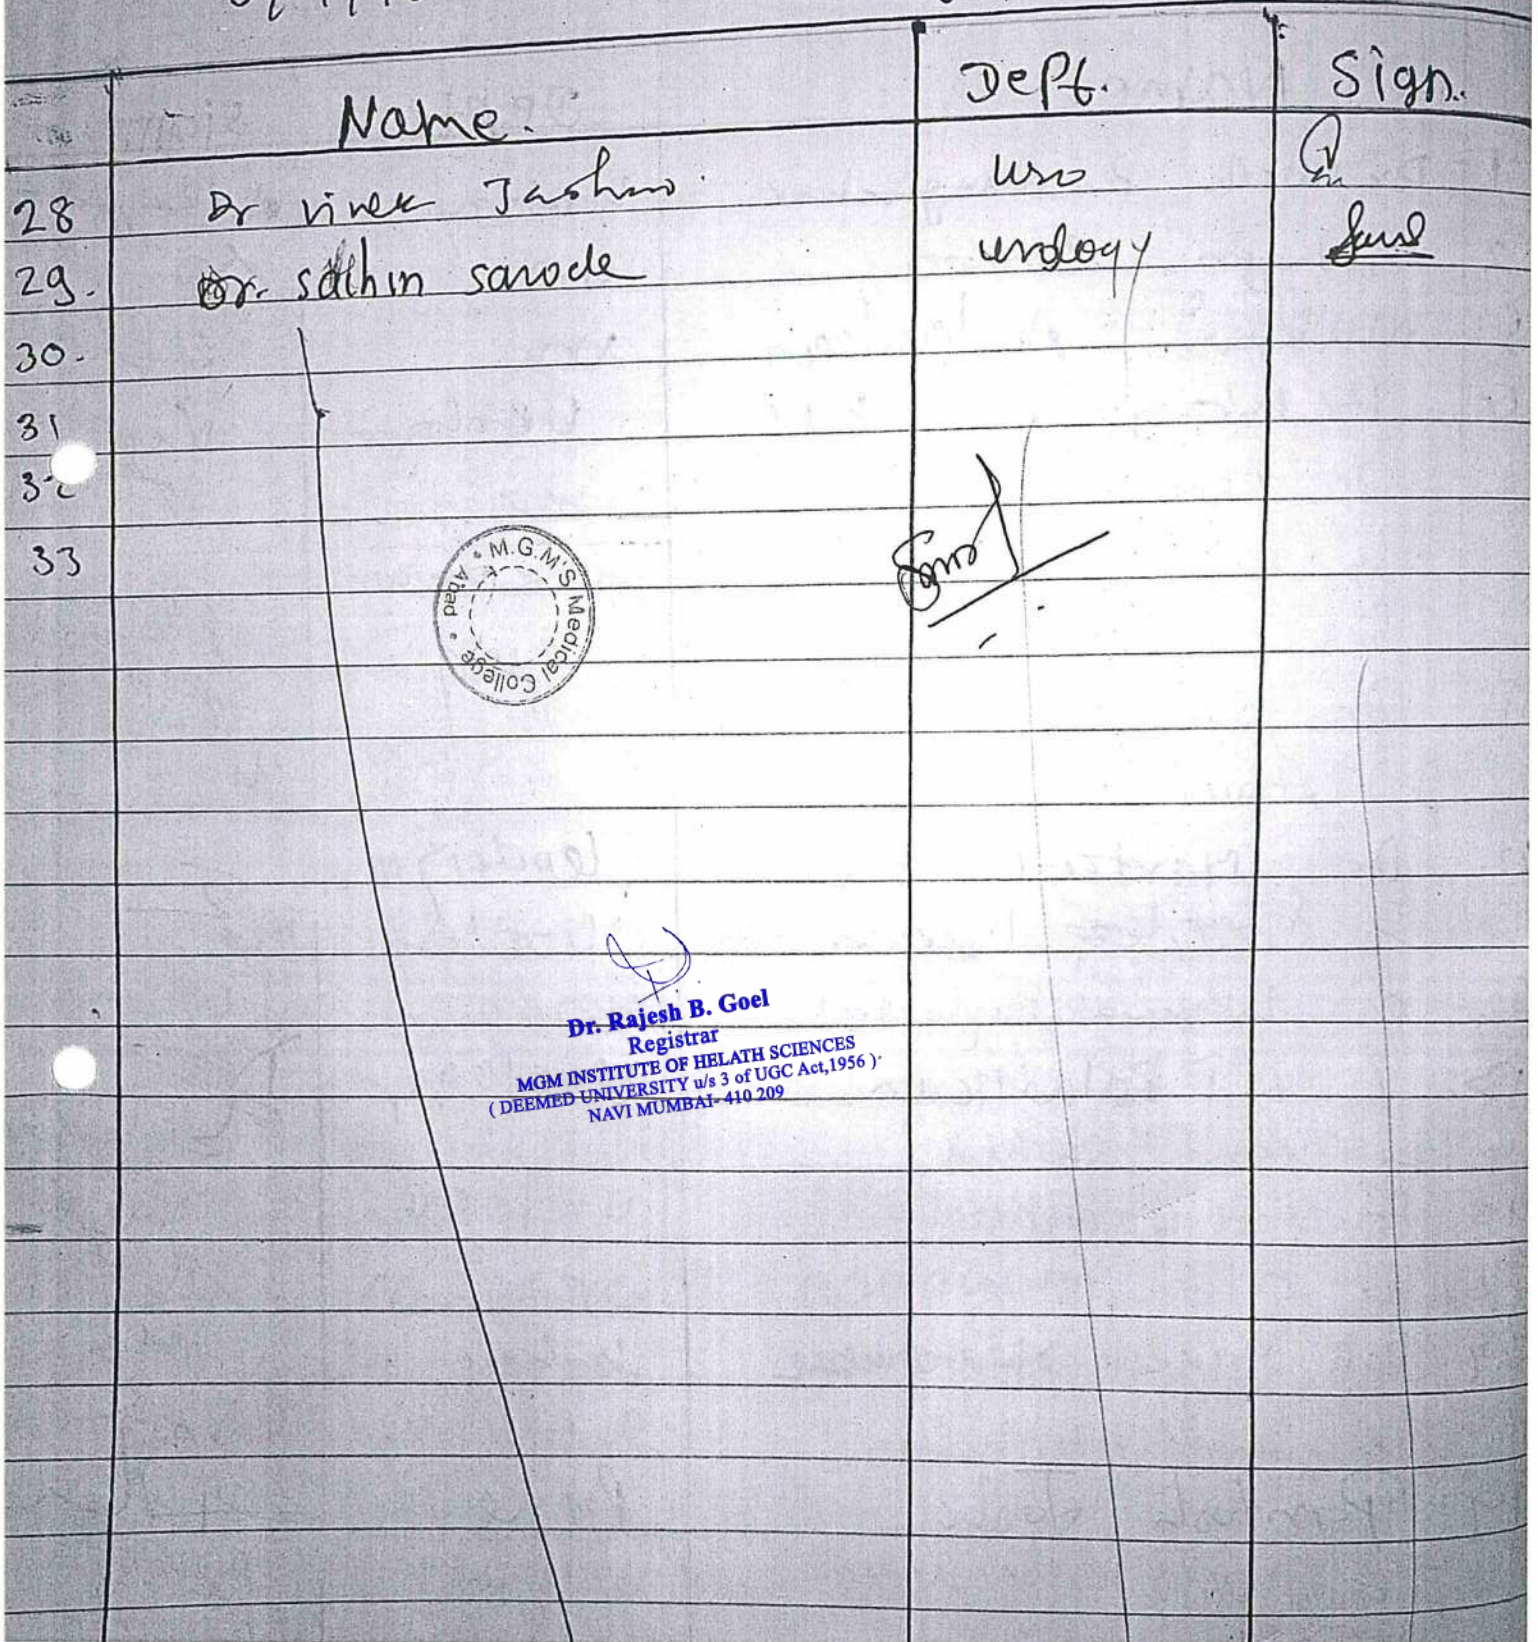 Name. Dept. Sign.
28 Dr vivek uro
29. Dr. sachin sarode urology
30.
31
32
33
M.G.M'S Medical College * A'bad *
Dr. Rajesh B. Goel
Registrar
MGM INSTITUTE OF HELATH SCIENCES
( DEEMED UNIVERSITY u/s 3 of UGC Act,1956 )
NAVI MUMBAI- 410 209